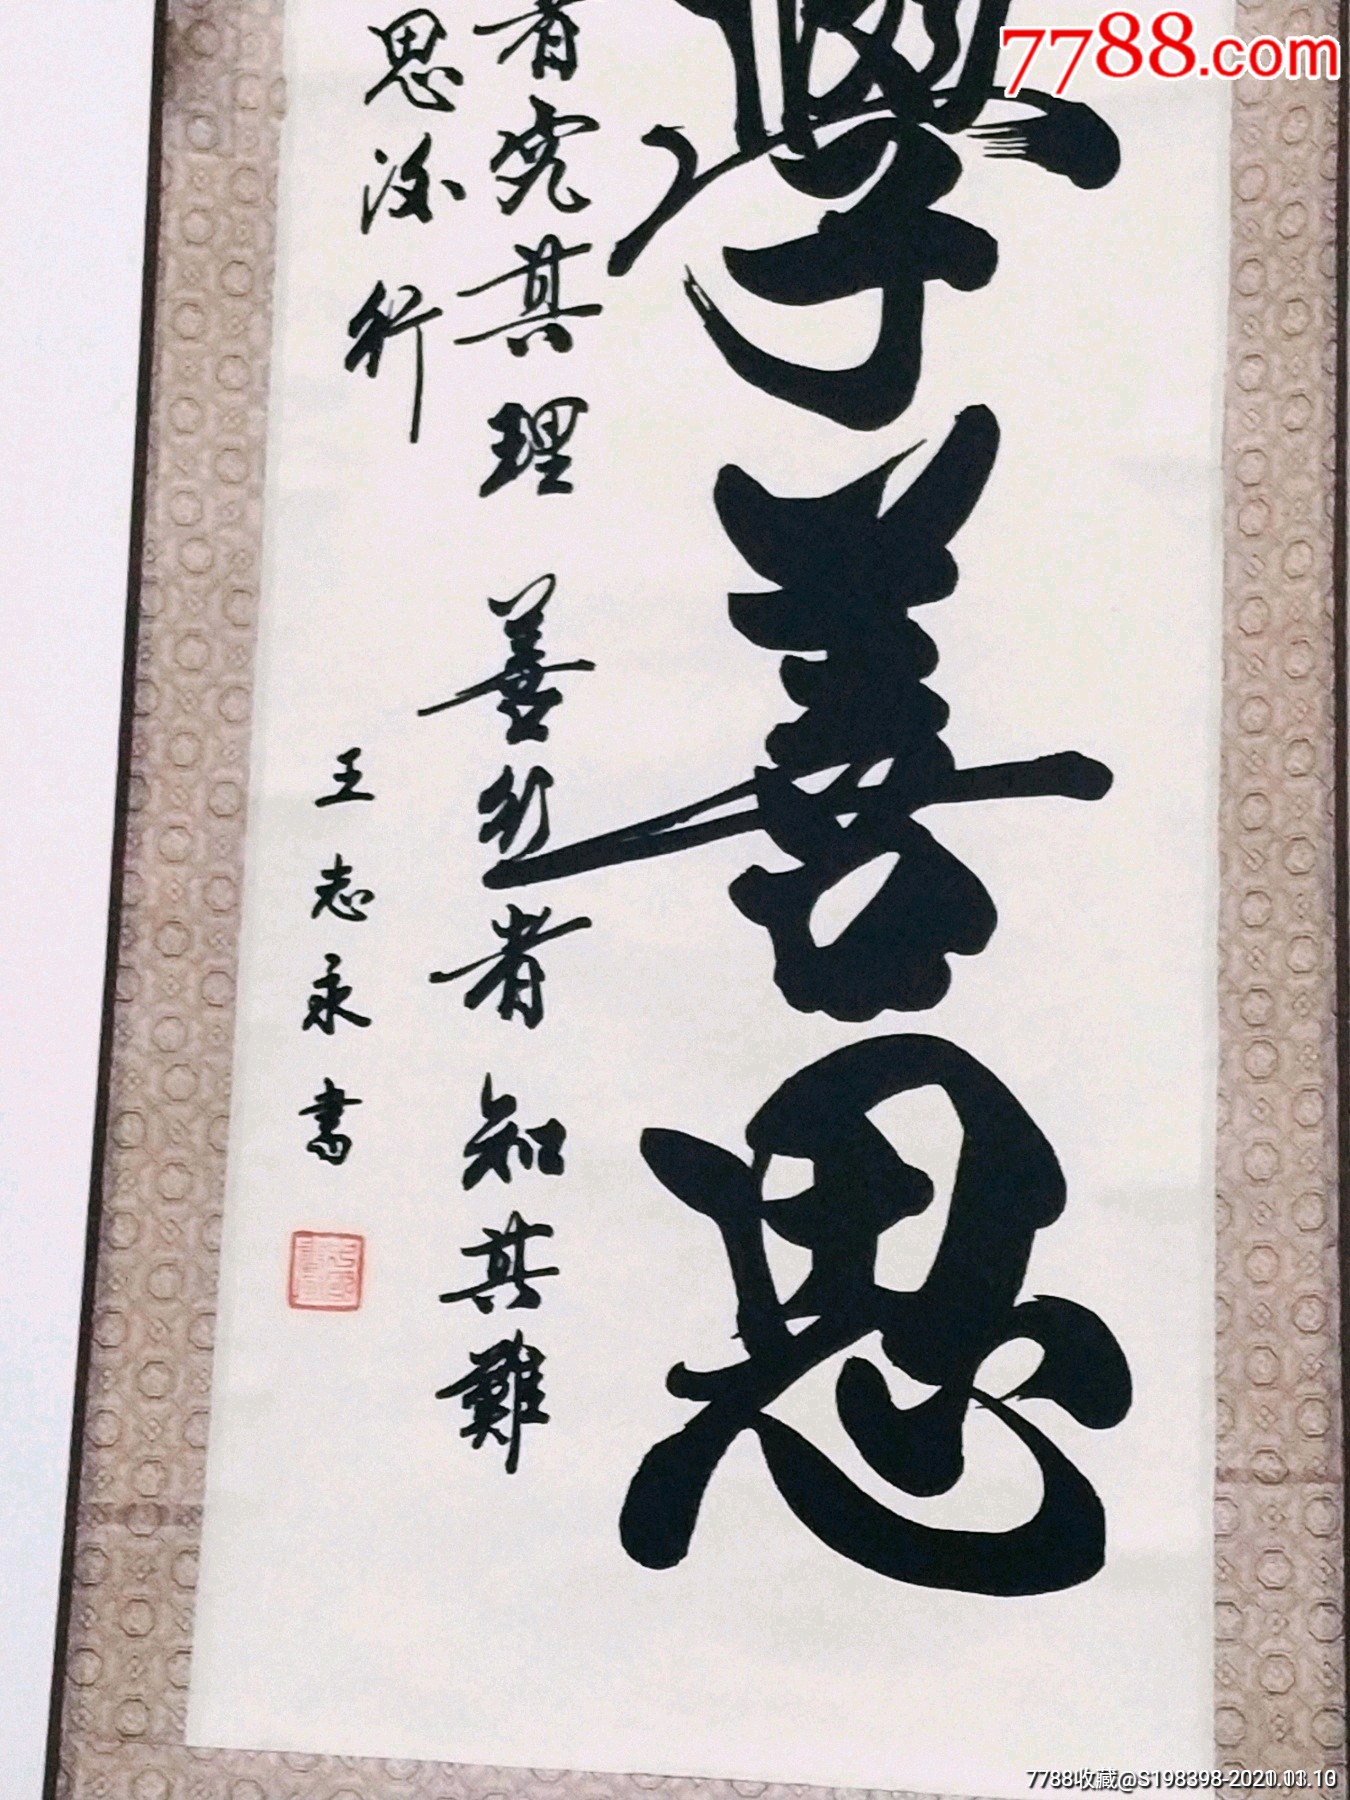 7788.com
學善思
者究其理善行者知其難
思深行
王志永書
7788收藏@S198398-2020.11.10